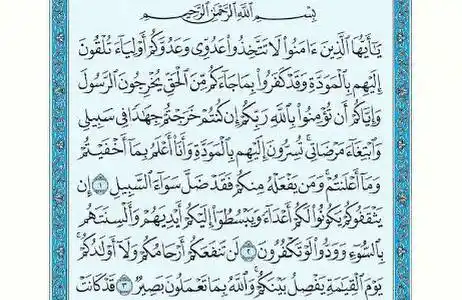 بِسْمِ اللَّهِ الرَّحْمَٰنِ الرَّحِيمِ
يَٰٓأَيُّهَا ٱلَّذِينَ ءَامَنُوا۟ لَا تَتَّخِذُوا۟ عَدُوِّى وَعَدُوَّكُمْ أَوْلِيَآءَ تُلْقُونَ
إِلَيْهِم بِٱلْمَوَدَّةِ وَقَدْ كَفَرُوا۟ بِمَا جَآءَكُم مِّنَ ٱلْحَقِّ يُخْرِجُونَ ٱلرَّسُولَ
وَإِيَّاكُمْ أَن تُؤْمِنُوا۟ بِٱللَّهِ رَبِّكُمْ إِن كُنتُمْ خَرَجْتُمْ جِهَٰدًا فِى سَبِيلِى
وَٱبْتِغَآءَ مَرْضَاتِى تُسِرُّونَ إِلَيْهِم بِٱلْمَوَدَّةِ وَأَنَا۠ أَعْلَمُ بِمَآ أَخْفَيْتُمْ
وَمَآ أَعْلَنتُمْ وَمَن يَفْعَلْهُ مِنكُمْ فَقَدْ ضَلَّ سَوَآءَ ٱلسَّبِيلِ ١ إِن
يَثْقَفُوكُمْ يَكُونُوا۟ لَكُمْ أَعْدَآءً وَيَبْسُطُوٓا۟ إِلَيْكُمْ أَيْدِيَهُمْ وَأَلْسِنَتَهُم
بِٱلسُّوٓءِ وَوَدُّوا۟ لَوْ تَكْفُرُونَ ٢ لَن تَنفَعَكُمْ أَرْحَامُكُمْ وَلَآ أَوْلَٰدُكُمْ
يَوْمَ ٱلْقِيَٰمَةِ يَفْصِلُ بَيْنَكُمْ وَٱللَّهُ بِمَا تَعْمَلُونَ بَصِيرٌ ٣ قَدْ كَانَتْ